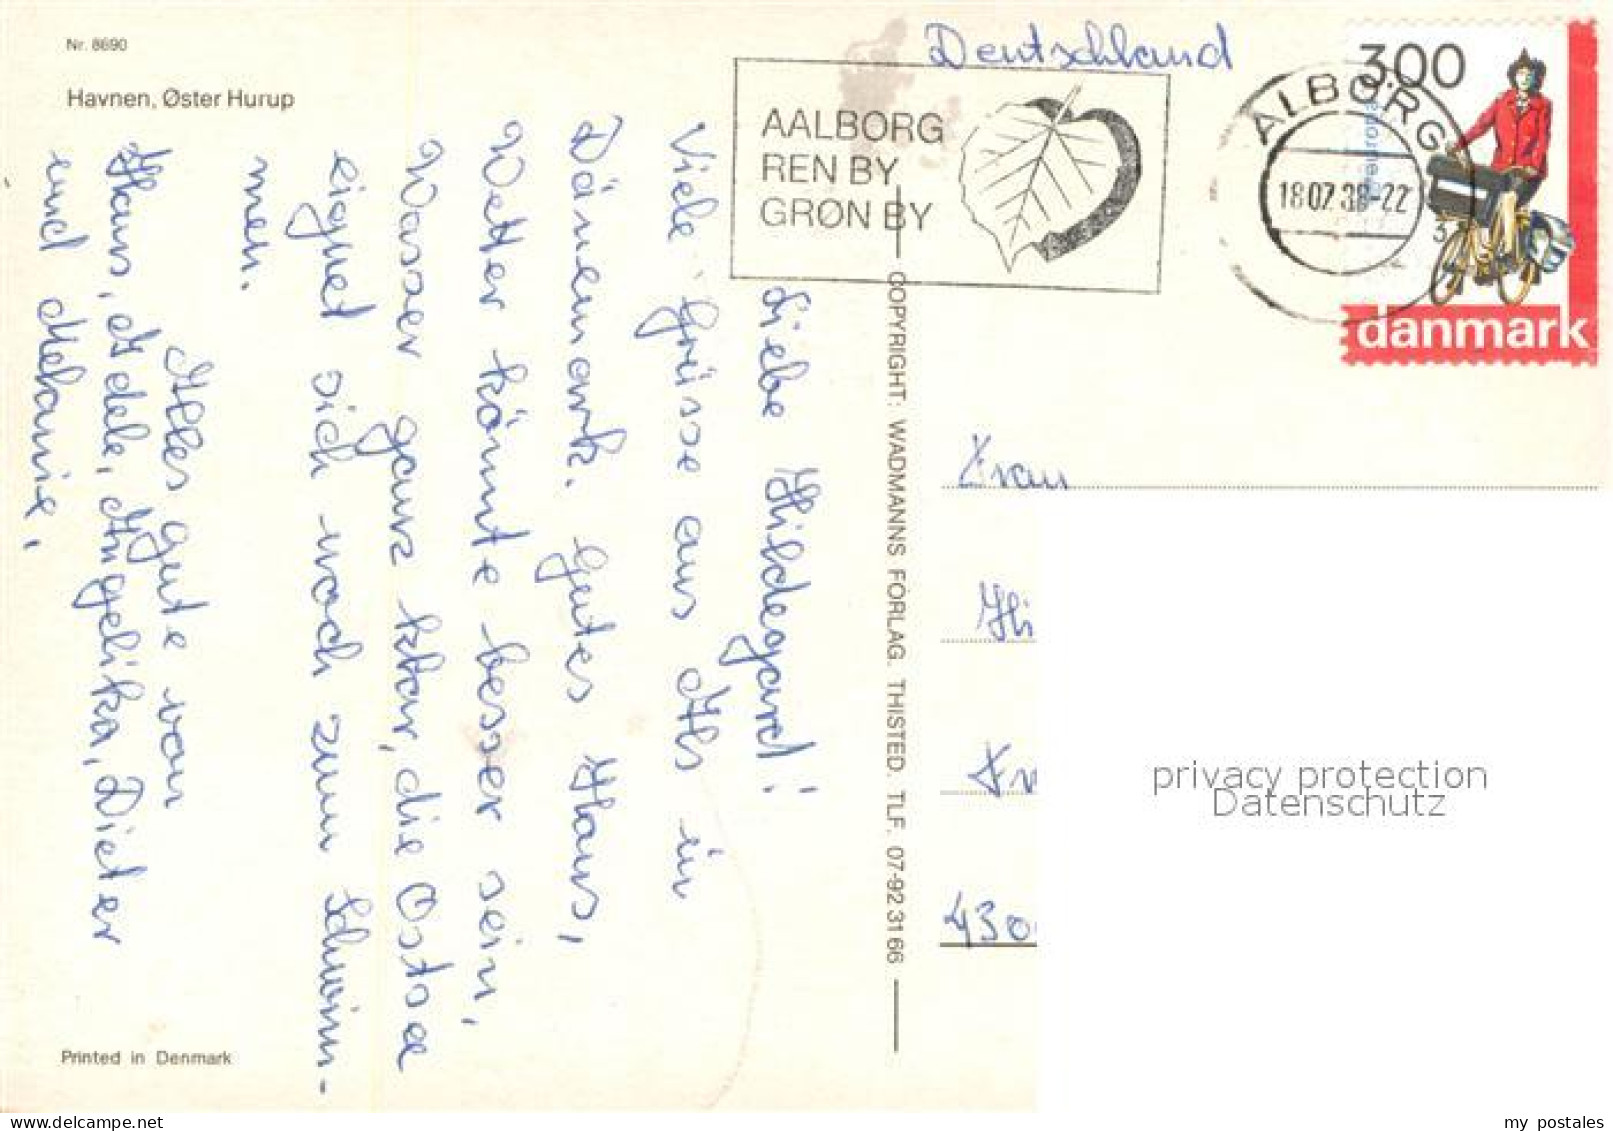 Nr. 8690
Havnen, Øster Hurup
Deutschland
AALBORG
REN BY
GRØN BY
ALBORG
18 07 88-22
3.00
europa
danmark
Liebe Hildegard!
Viele Grüsse aus Als in
Dänemark. Gutes Haus,
Wetter könnte besser sein,
Wasser ganz klar, die Ostsee
eignet sich noch zum Schwim-
men.
Alles gute von
Hans, Adele, Angelika, Dieter
und Melanie,
COPYRIGHT: WADMANNS FORLAG. THISTED. TLF. 07-92 31 66
Frau
Hi
430
privacy protection
Datenschutz
Printed in Denmark
www.delcampe.net
my_postales